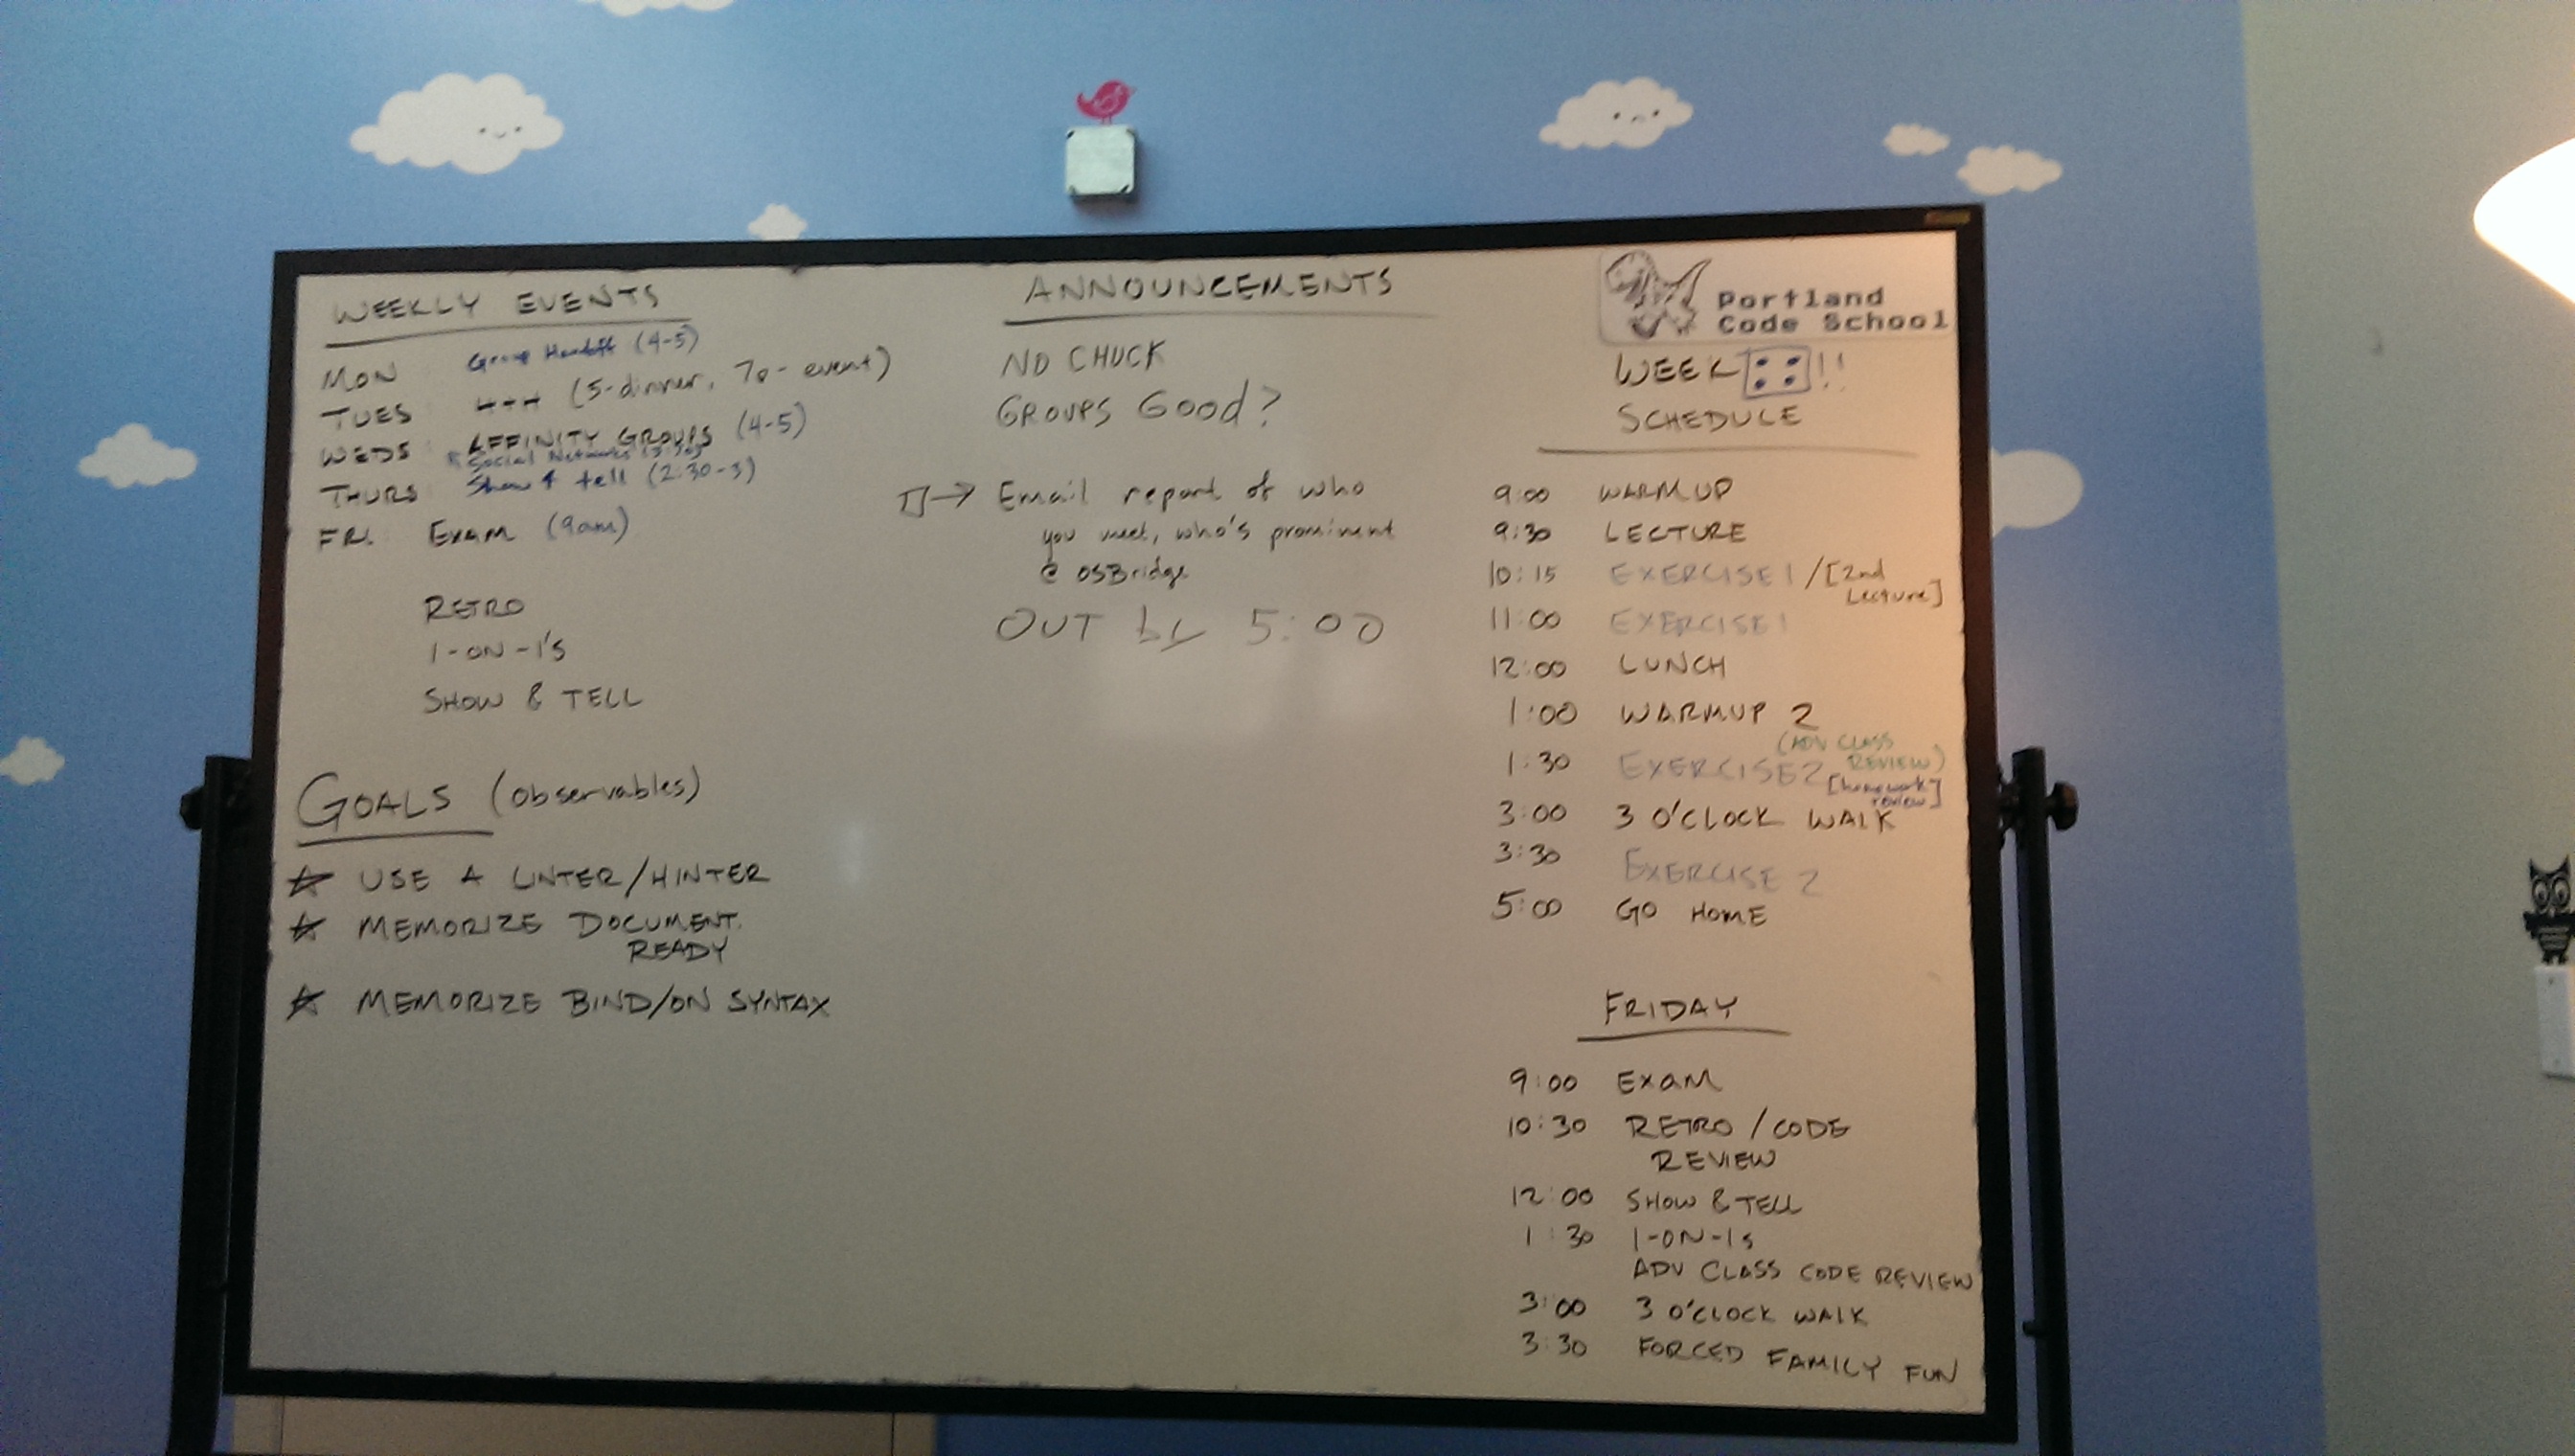 WEEKLY EVENTS
MON Group Handoff (4-5)
TUES (5-dinner, 7p-event)
WEDS AFFINITY GROUPS (4-5)
Social Networks
THURS Show & tell (2:30-3)
FRI. EXAM (9am)
RETRO
1-ON-1'S
SHOW & TELL
GOALS (observables)
USE A LINTER/HINTER
MEMORIZE DOCUMENT.
READY
MEMORIZE BIND/ON SYNTAX
ANNOUNCEMENTS
NO CHUCK
GROUPS GOOD?
Email report of who
you meet, who's prominent
@ OSBridge
OUT by 5:00
Portland
Code School
WEEK !!
SCHEDULE
9:00 WARMUP
9:30 LECTURE
10:15 EXERCISE 1 / [2nd
Lecture]
11:00 EXERCISE 1
12:00 LUNCH
1:00 WARMUP 2
(ADV CLASS
REVIEW)
1:30 EXERCISE 2 [homework
review]
3:00 3 O'CLOCK WALK
3:30 EXERCISE 2
5:00 GO HOME
FRIDAY
9:00 EXAM
10:30 RETRO / CODE
REVIEW
12:00 SHOW & TELL
1:30 1-ON-1s
ADV CLASS CODE REVIEW
3:00 3 O'CLOCK WALK
3:30 FORCED FAMILY FUN